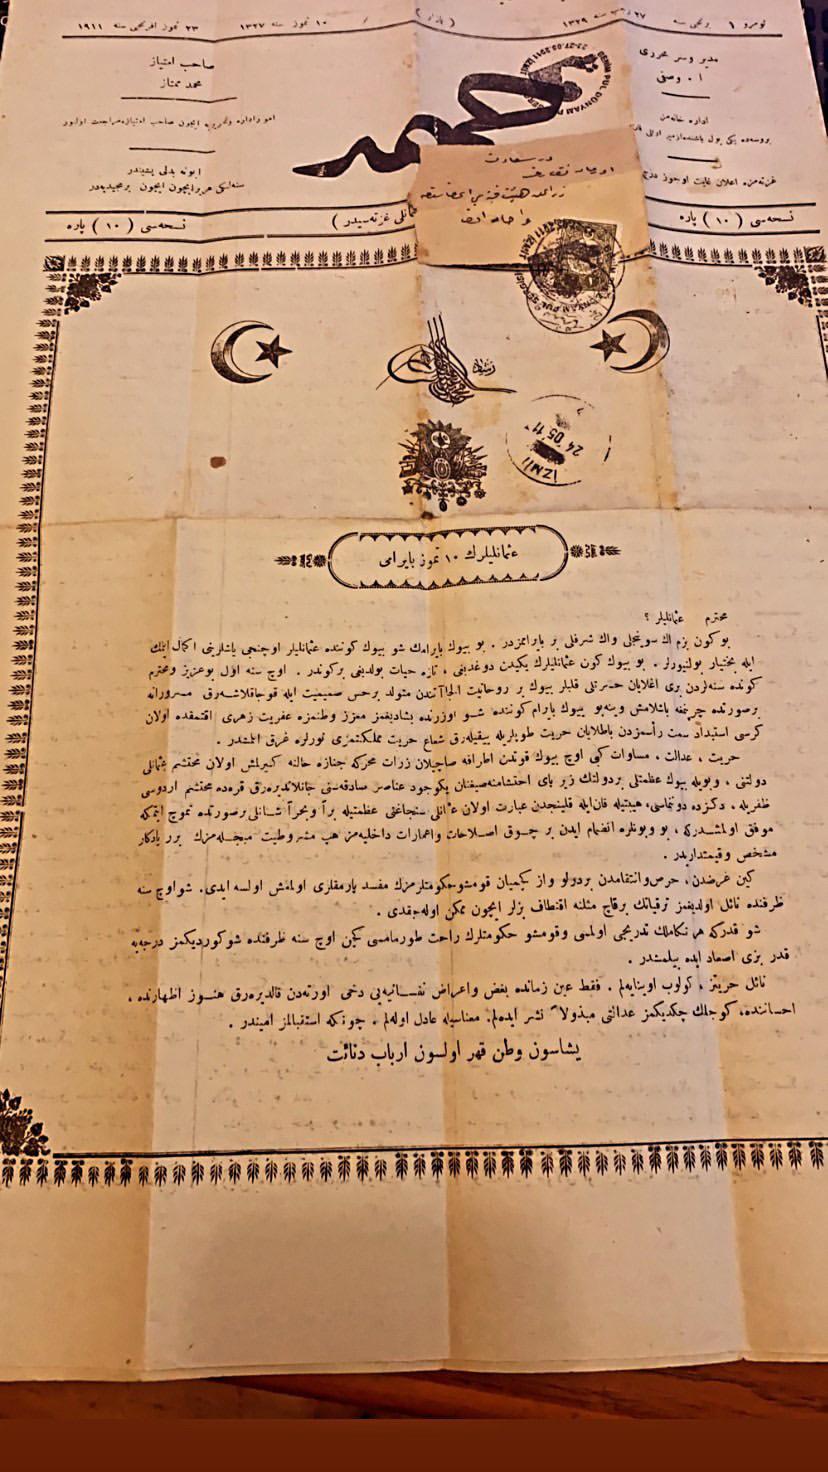 نومرو ١ برنجی سنه ٢٧ سنه ١٣٢٩ ( بازار ) ١٠ تموز سنه ١٣٢٧ ٢٣ تموز افرنجی سنه ١٩١١
مدیر وسر محرری
ا . وصفی
اداره خانه‌سی
غزته‌مزه اعلان غایت اوجوز درج
صاحب امتیاز
محمد ممتاز
امور اداره وتحریریه ایچون صاحب امتیازه مراجعت اولنور
ابونه بدلی پشیندر
سنه‌لکی هر یر ایچون ایچون بر مجیدیه‌در
در سعادت
نسخه‌سی ( ١٠ ) پاره
عثمانلی غزته‌سیدر )
نسخه‌سی ( ١٠ ) پاره
رشاد
IZMIT
24 05 11
عثمانلیلرك ١٠ تموز بایرامی
محترم عثمانلیلر ؟
بو کون بزم اك سوینجلی واك شرفلی بر بایرامزدر . بو بیوك بایرامك شو بیوك کوننده عثمانلیلر اوچنجی یاشلرینی اکمال ایتمك
ایله بختیار بولنیورلر . بو بیوك کون عثمانلیلرك یکیدن دوغدیغی ، تازه حیات بولدیغی برکوندر . اوچ سنه اول بو عزیز ومحترم
کونده سنه‌لردن بری اغلایان حسرتلی قلبلر بیوك بر روحانیت متولد برحس صمیمیت ایله قوجاقلاشه‌رق مسرورانه
برصورتده چرپنمغه باشلامش وینه بو بیوك بایرام کوننده شو اوزرنده یشادیغمز معزز وطنمزه عفریت زهری اقتمقده اولان
کرسی استبداد سمت رأسمزدن پاطلایان حریت طوپلریله ییقیله‌رق شعاع حریت مملکتمزی نورلره غرق ایتمشدر .
حریت ، عدالت ، مساوات کبی اوچ بیوك قوتدن اطرافه صاچیلان ذرات محرکه جنازه حالنه کتیرلمش اولان محتشم عثمانلی
دولتنی ، وبویله بیوك عظمتلی بردولتك زیر پای احتشامنه صیغنان یکوجود عناصر صادقه‌سنی جانلاندیره‌رق قره‌ده محتشم اردوسی
ظفریله ، دکزده دوننماسی ، هیبتیله قان ایله قلیجندن عبارت اولان عثمانلی سنجاغنی عظمتیله براً وبحراً شانلی برصورتده تموج ایتمکه
موفق اولمشدرکه ، بو وبونلره انضمام ایدن بر چوق اصلاحات واعمارات داخلیه‌مز هپ مشروطیت مبجله‌مزك برر یادکار
مشخص وقیمتداریدر .
کین غرضدن ، حرص وانتقامدن بردولو واز کچمیان قومشو حکومتلرمزك مفسد پارمقلری اولمامش اولسه ایدی . شو اوچ سنه
ظرفنده نائل اولدیغمز ترقیاتك برقاچ مثلنه اقتطاف بزلر ایچون ممکن اوله‌جقدی .
شو قدرکه هر تکاملك تدریجی اولمسی وقومشو حکومتلرك راحت طورماسی کچن اوچ سنه ظرفنده شو کوردیکمز درجه‌یه
قدر بزی اصعاد ایده بیلمشدر .
نائل حریتز ، کولوب اوینایه‌لم . فقط عین زمانده بغض واعراض نفسانیه‌یی دخی اورته‌دن قالدیره‌رق هنوز اظهارنده ،
احساننده ، کوجلك چکدیکمز عدالتی مبذولاً نشر ایده‌لم . معناسیله عادل اوله‌لم . چونکه استقبالمز امیندر .
یشاسون وطن قهر اولسون ارباب دنائت